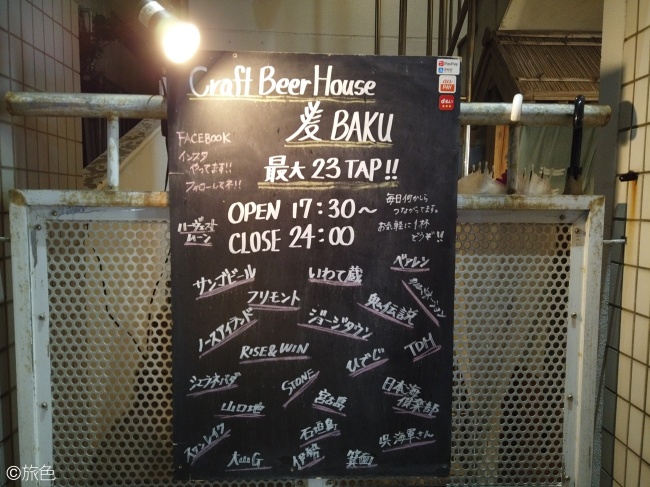 Craft Beer House
麦 BAKU
FACEBOOK
インスタ
やってます!!
フォローしてネ!!
最大 23 TAP!!
OPEN 17:30〜
CLOSE 24:00
毎日何かしら
つながってます。
お気軽に1杯
どうぞ!!
ハーヴェスト
ムーン
ベアレン
サンゴビール
いわて蔵
フリモント
鬼伝説
ノースアイランド
ジョージタウン
RISE&WIN
ひでじ
TDM
シエラネバダ
STONE
宮古島
日本海
倶楽部
山口地
石垣島
呉 海軍さん
スケンレイク
伊勢
箕面
PayPay
au
PAY
d払い
©旅色